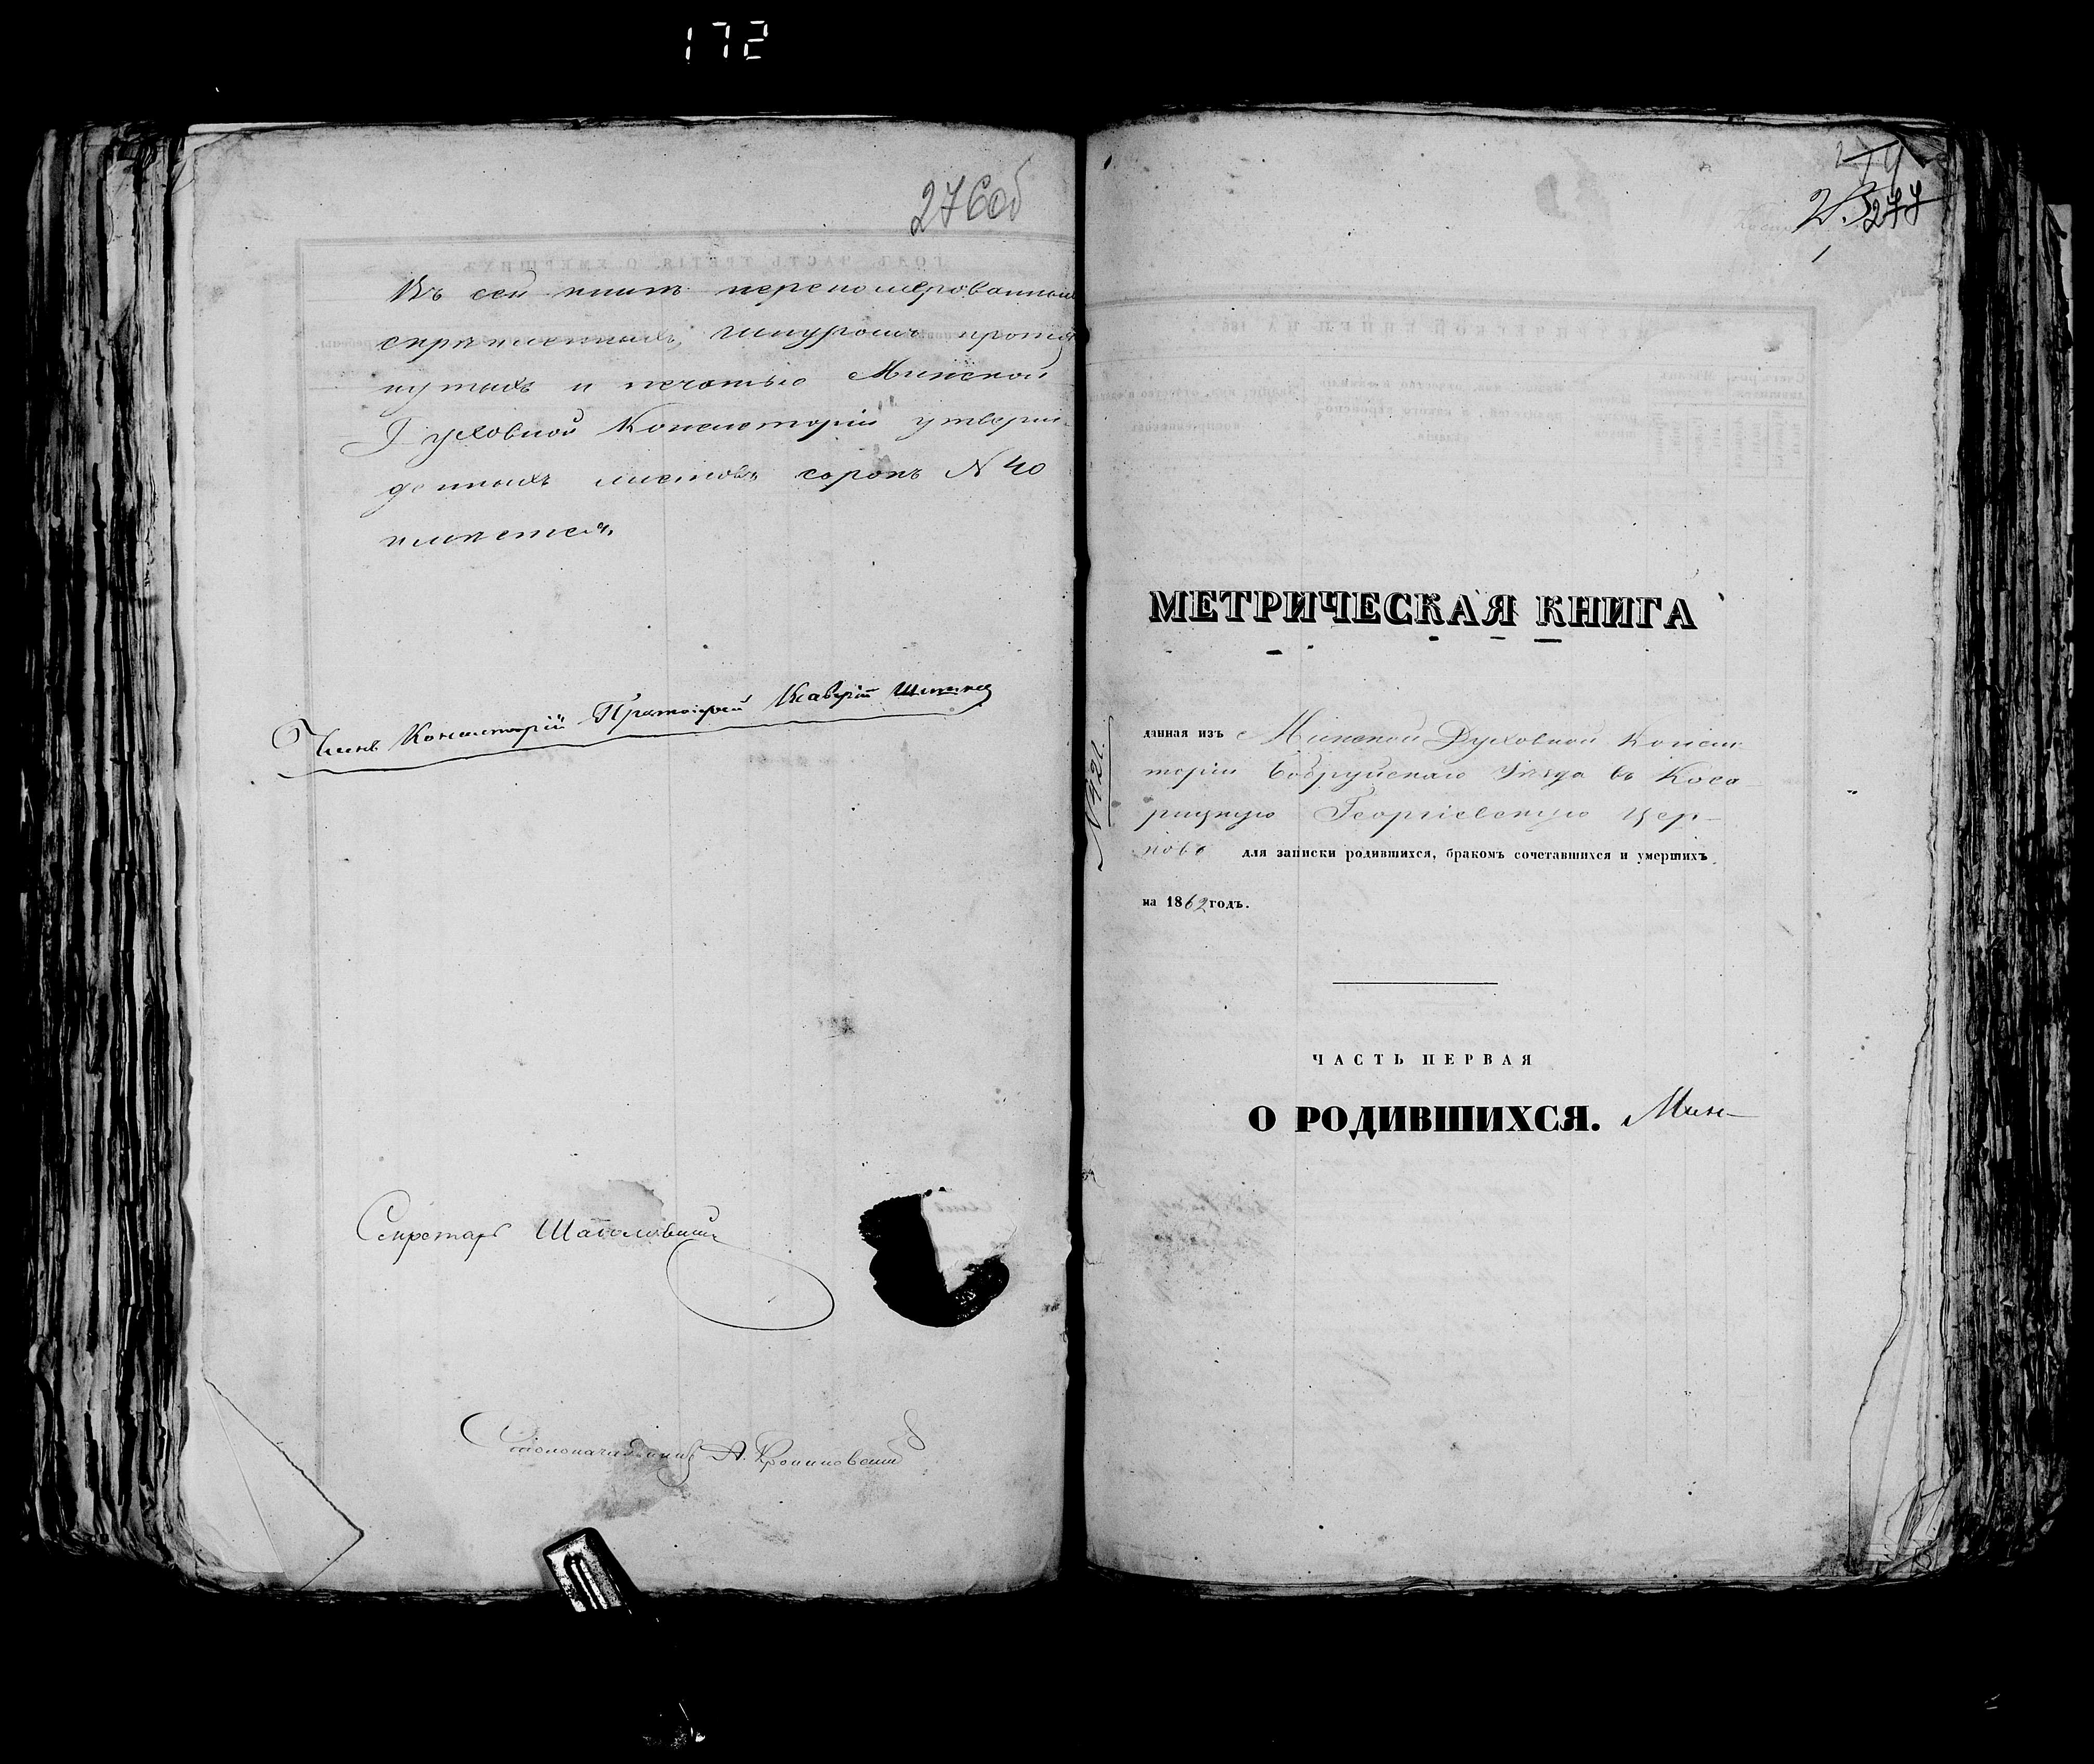 172
276об
Въ сей книгѣ перенумерованныхъ
скрѣпленныхъ, шнуромъ протя
нутыхъ и печатью Минской
Духовной Консисторіи утверж-
денныхъ листовъ сорокъ N 40
имѣется.
Членъ Консисторіи Протоіерей
Секретарь
Столоначальникъ А.
277
МЕТРИЧЕСКАЯ КНИГА
данная изъ Минской Духовной Консис
торіи Бобруйскаго Уѣзда въ Коса
рицкую Георгіевскую Цер-
ковь для записки родившихся, бракомъ сочетавшихся и умершихъ
на 1862 годъ.
ЧАСТЬ ПЕРВАЯ
О РОДИВШИХСЯ. Мин-